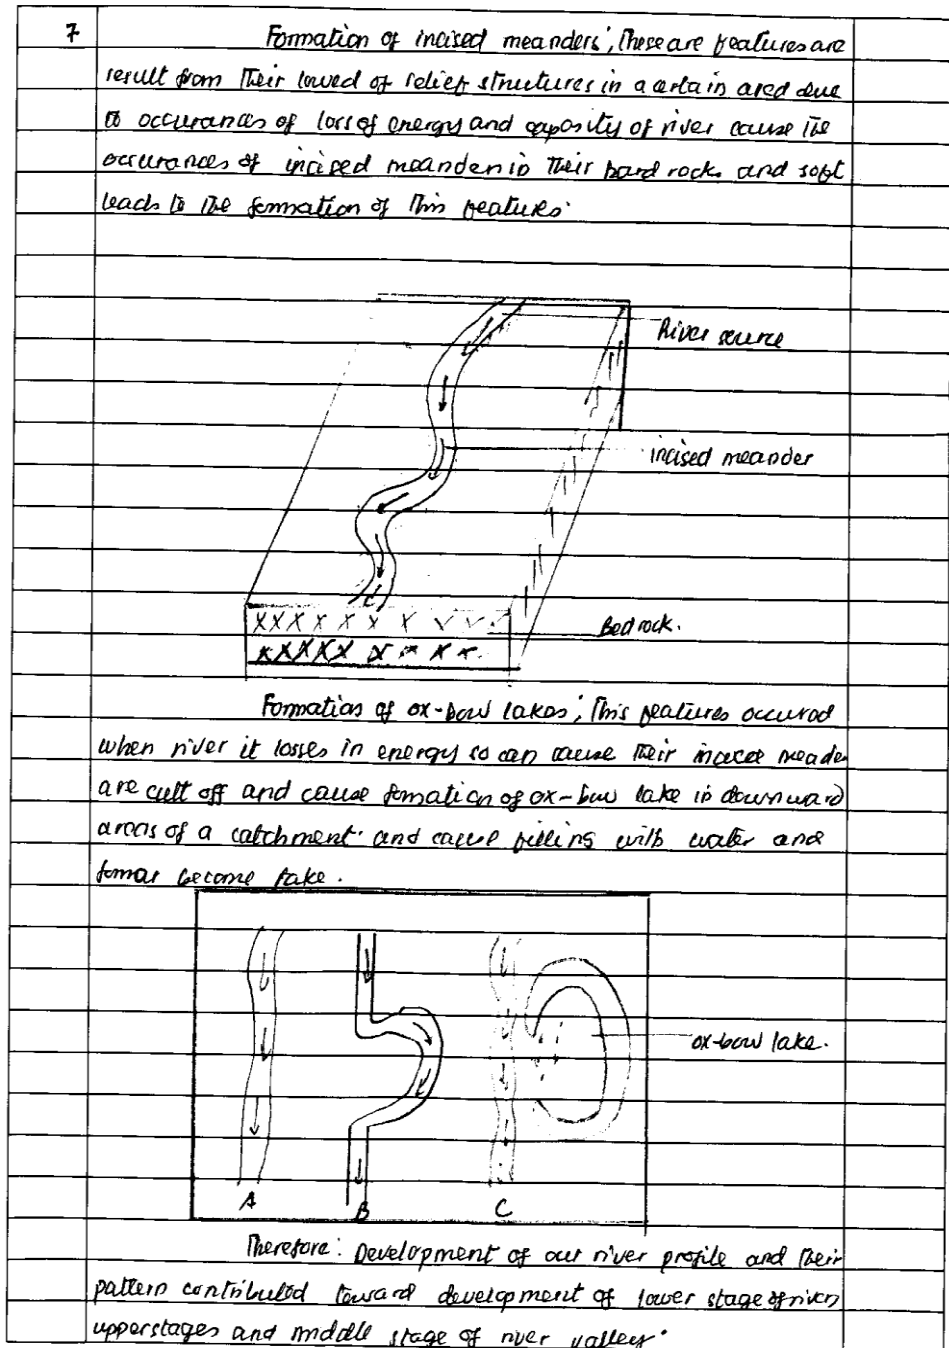 7 Formation of incised meanders; These are features are
result from Their lowed of relief structures in a certain area due
to occurances of loss of energy and caposity of river cause The
occurances of incised meander in Their hard rocks and soft
leads to The formation of This features.
River source
incised meander
Bedrock.
XXX X X X X
XXXXX X X X X
Formation of ox-bow lakes; This features occured
when river it losses in energy so can cause Their meader
are cutt off and cause fomation of ox-bow lake in downward
areas of a catchment. and cause filling with water and
become lake.
ox-bow lake.
A B C
Therefore: Development of our river profile and Their
pattern contributed toward development of lower stage of river
upperstages and middle stage of river valley.